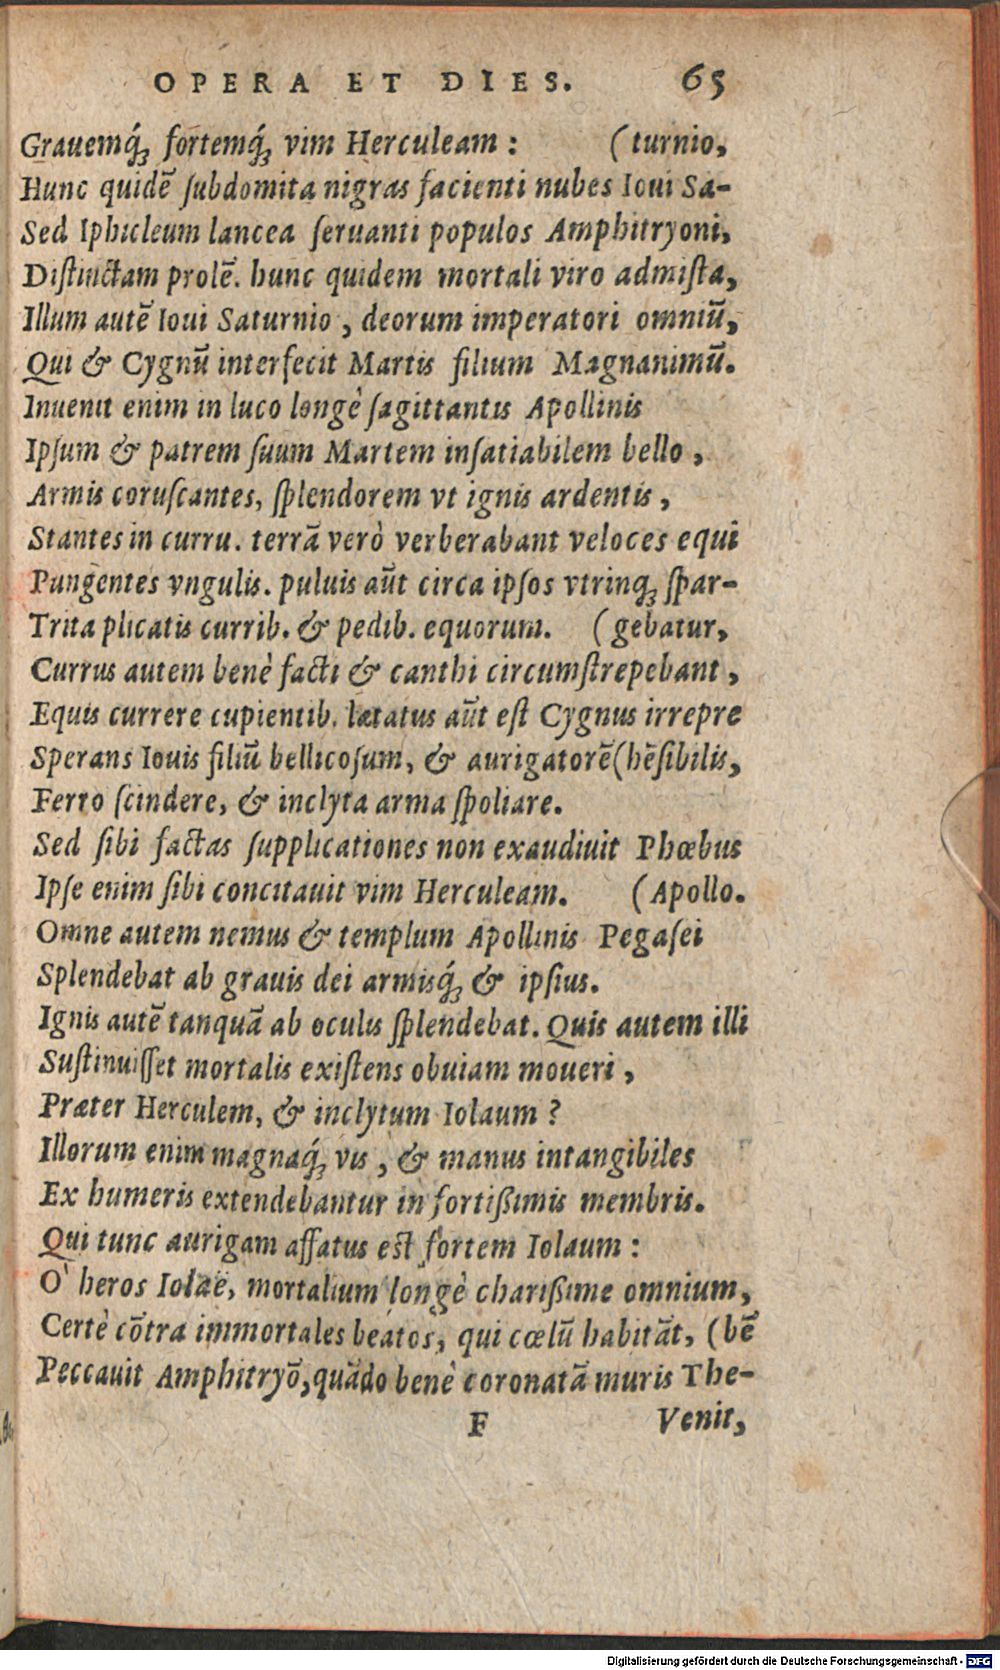 OPERA ET DIES. 65
Grauemq́; fortemq́; vim Herculeam : (turnio,
Hunc quidẽ ſubdomita nigras facienti nubes Ioui Sa-
Sed Iphicleum lancea ſeruanti populos Amphitryoni,
Diſtinctam prolẽ. hunc quidem mortali viro admiſta,
Illum autẽ Ioui Saturnio , deorum imperatori omniũ,
Qui & Cygnũ interfecit Martis filium Magnanimũ.
Inuenit enim in luco longè ſagittantis Apollinis
Ipſum & patrem ſuum Martem inſatiabilem bello ,
Armis coruſcantes, ſplendorem vt ignis ardentis ,
Stantes in curru. terrã verò verberabant veloces equi
Pungentes vngulis. puluis aũt circa ipſos vtrinq; ſpar-
Trita plicatis currib. & pedib. equorum. (gebatur,
Currus autem benè facti & canthi circumſtrepebant ,
Equis currere cupientib. lætatus aũt eſt Cygnus irrepre
Sperans Iouis filiũ bellicoſum, & aurigatorẽ(hẽſibilis,
Ferro ſcindere, & inclyta arma ſpoliare.
Sed ſibi factas ſupplicationes non exaudiuit Phœbus
Ipſe enim ſibi concitauit vim Herculeam. (Apollo.
Omne autem nemus & templum Apollinis Pegaſei
Splendebat ab grauis dei armisq́; & ipſius.
Ignis autẽ tanquã ab oculis ſplendebat. Quis autem illi
Suſtinuiſſet mortalis exiſtens obuiam moueri ,
Præter Herculem, & inclytum Iolaum ?
Illorum enim magnaq́; vis , & manus intangibiles
Ex humeris extendebantur in fortißimis membris.
Qui tunc aurigam affatus eſt fortem Iolaum :
O' heros Iolaë, mortalium longè charißime omnium,
Certè cõtra immortales beatos, qui cœlũ habitãt, (bẽ
Peccauit Amphitryõ, quãdo benè coronatã muris The-
F Venit,
Digitalisierung gefördert durch die Deutsche Forschungsgemeinschaft - DFG